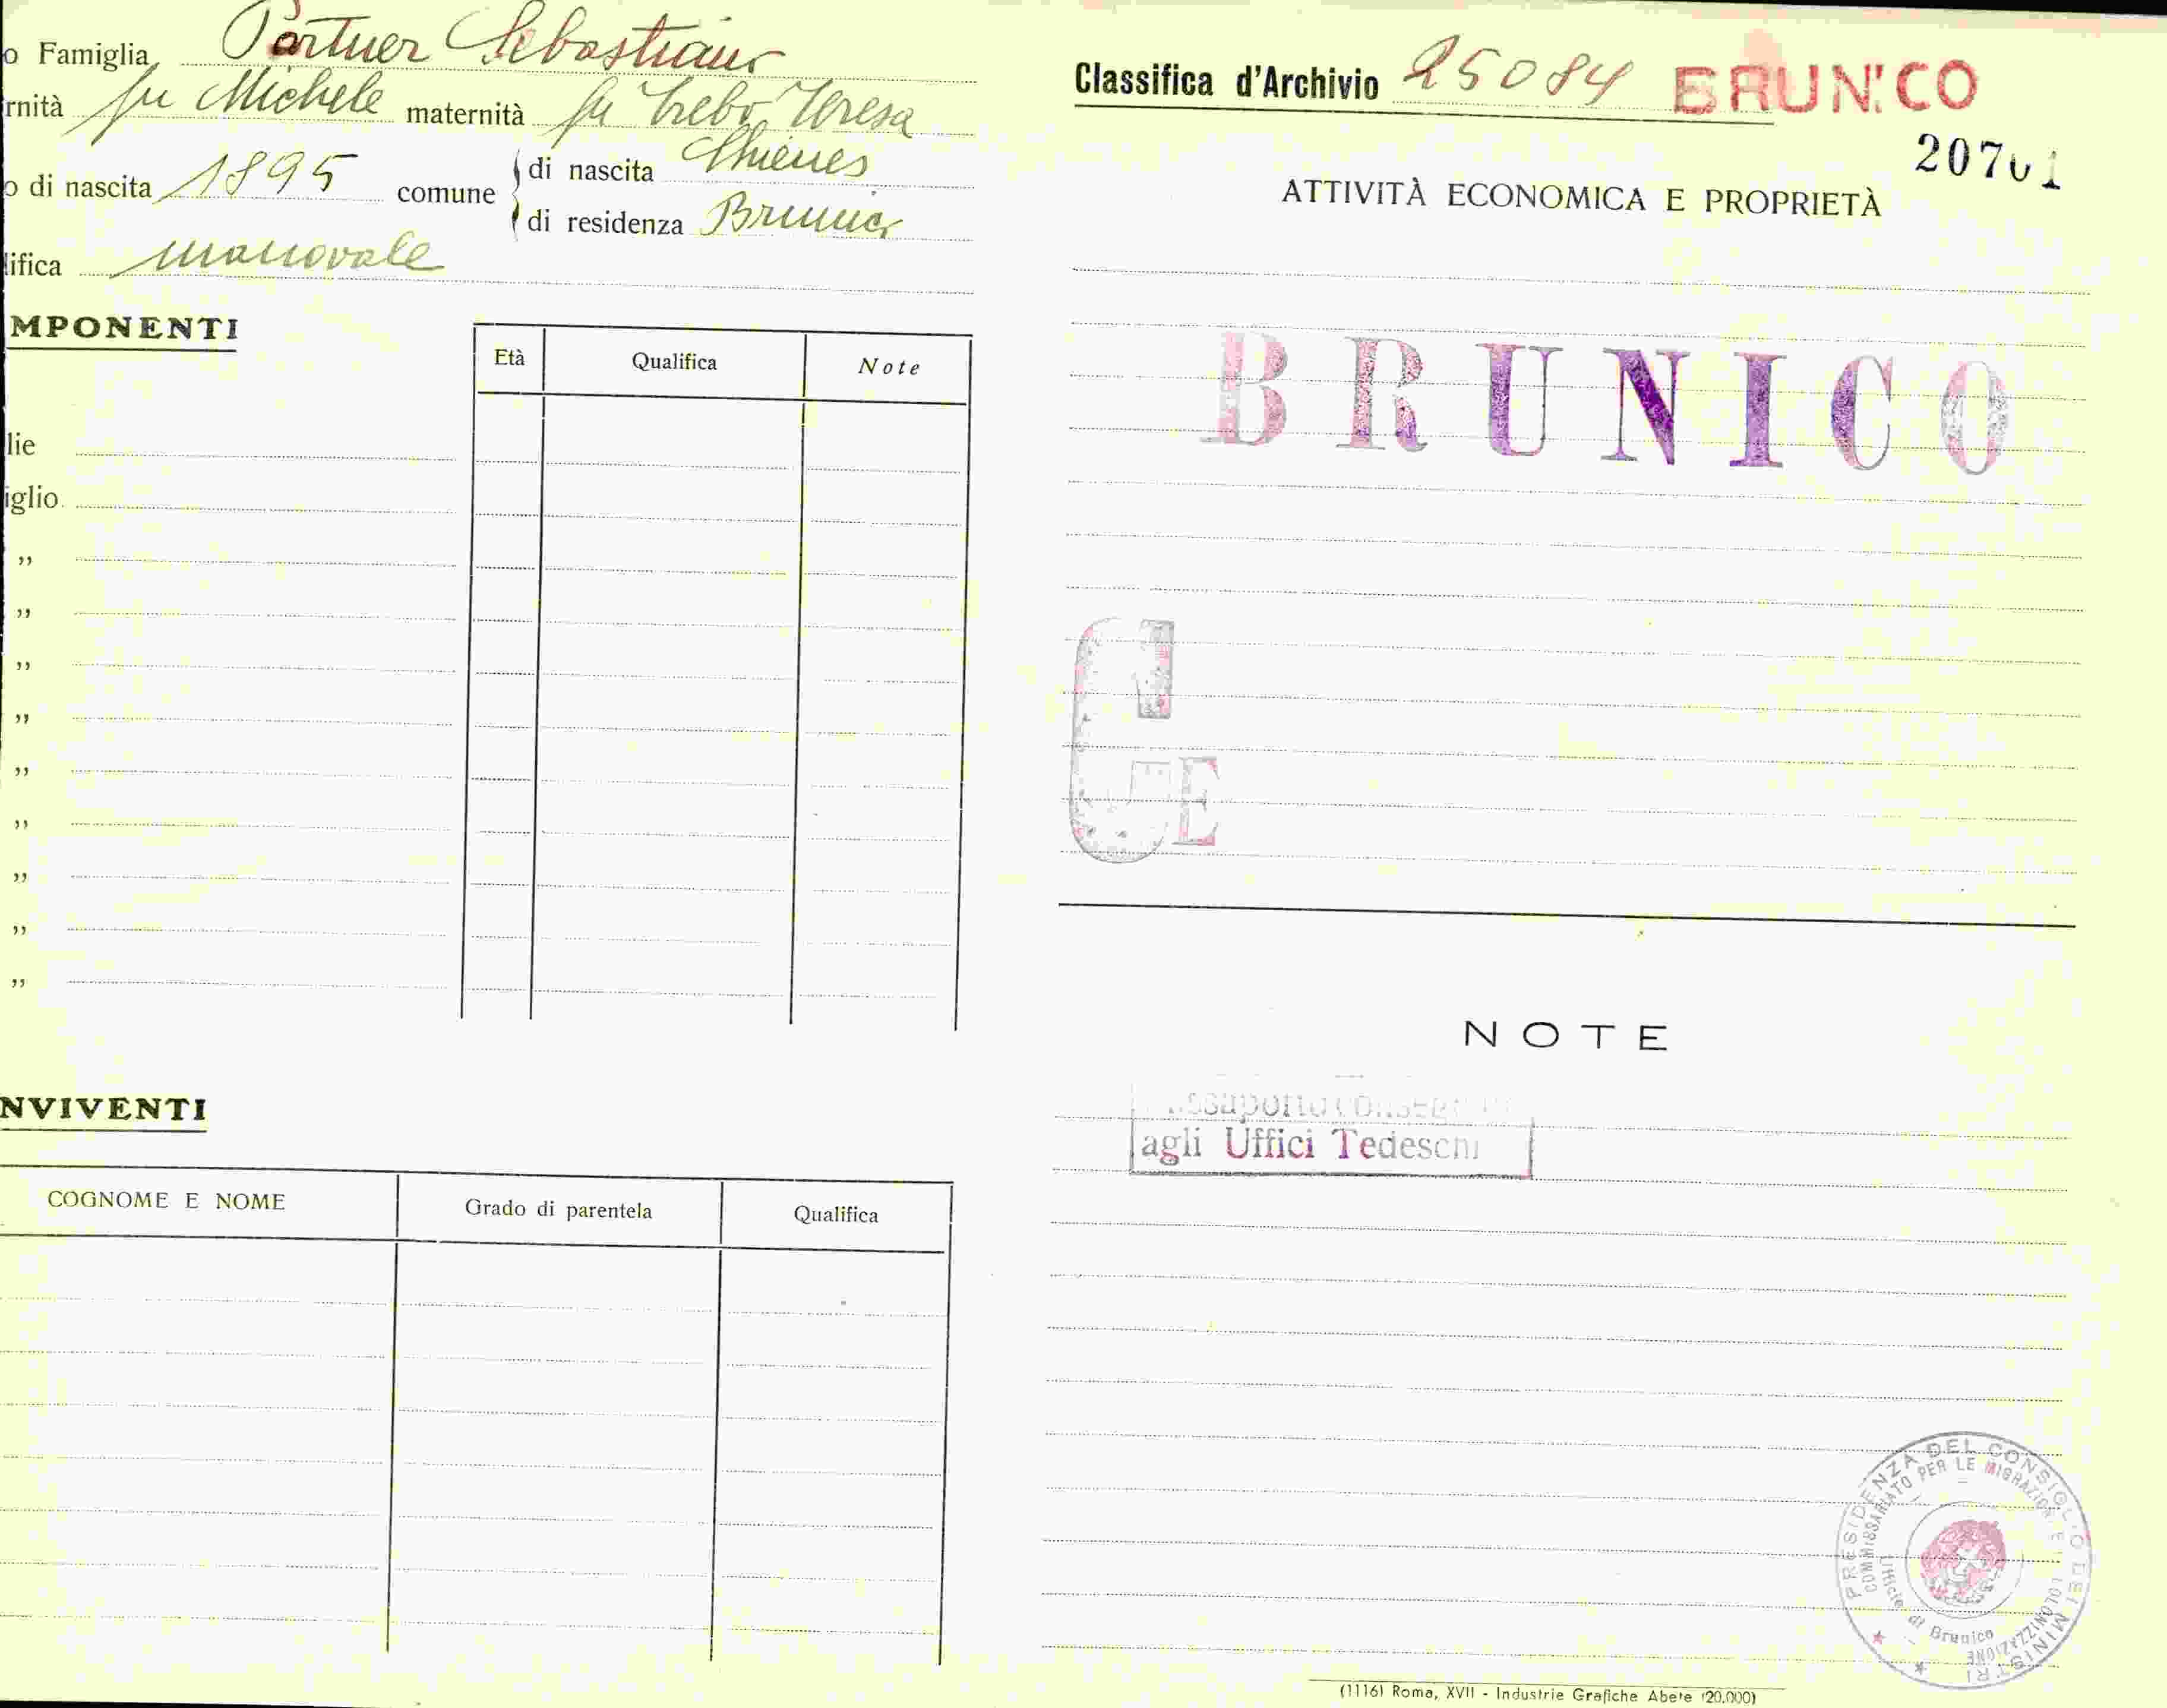 o Famiglia Portner Sebastiano
rnità fu Michele maternità fu Trebo Teresa
o di nascita 1895 comune di nascita Chienes
di residenza Brunico
lifica manovale
MPONENTI
Età Qualifica Note
lie
iglio
"
"
"
"
"
"
"
"
"
NVIVENTI
COGNOME E NOME Grado di parentela Qualifica
Classifica d'Archivio 25084 BRUNICO
20701
ATTIVITÀ ECONOMICA E PROPRIETÀ
BRUNICO
E
NOTE
agli Uffici Tedeschi
PRESIDENZA DEL CONSIGLIO DEI MINISTRI
COMMISSARIATO PER LE MIGRAZIONI E LA COLONIZZAZIONE
Ufficio di Brunico
(1116) Roma, XVII - Industrie Grafiche Abete (20.000)